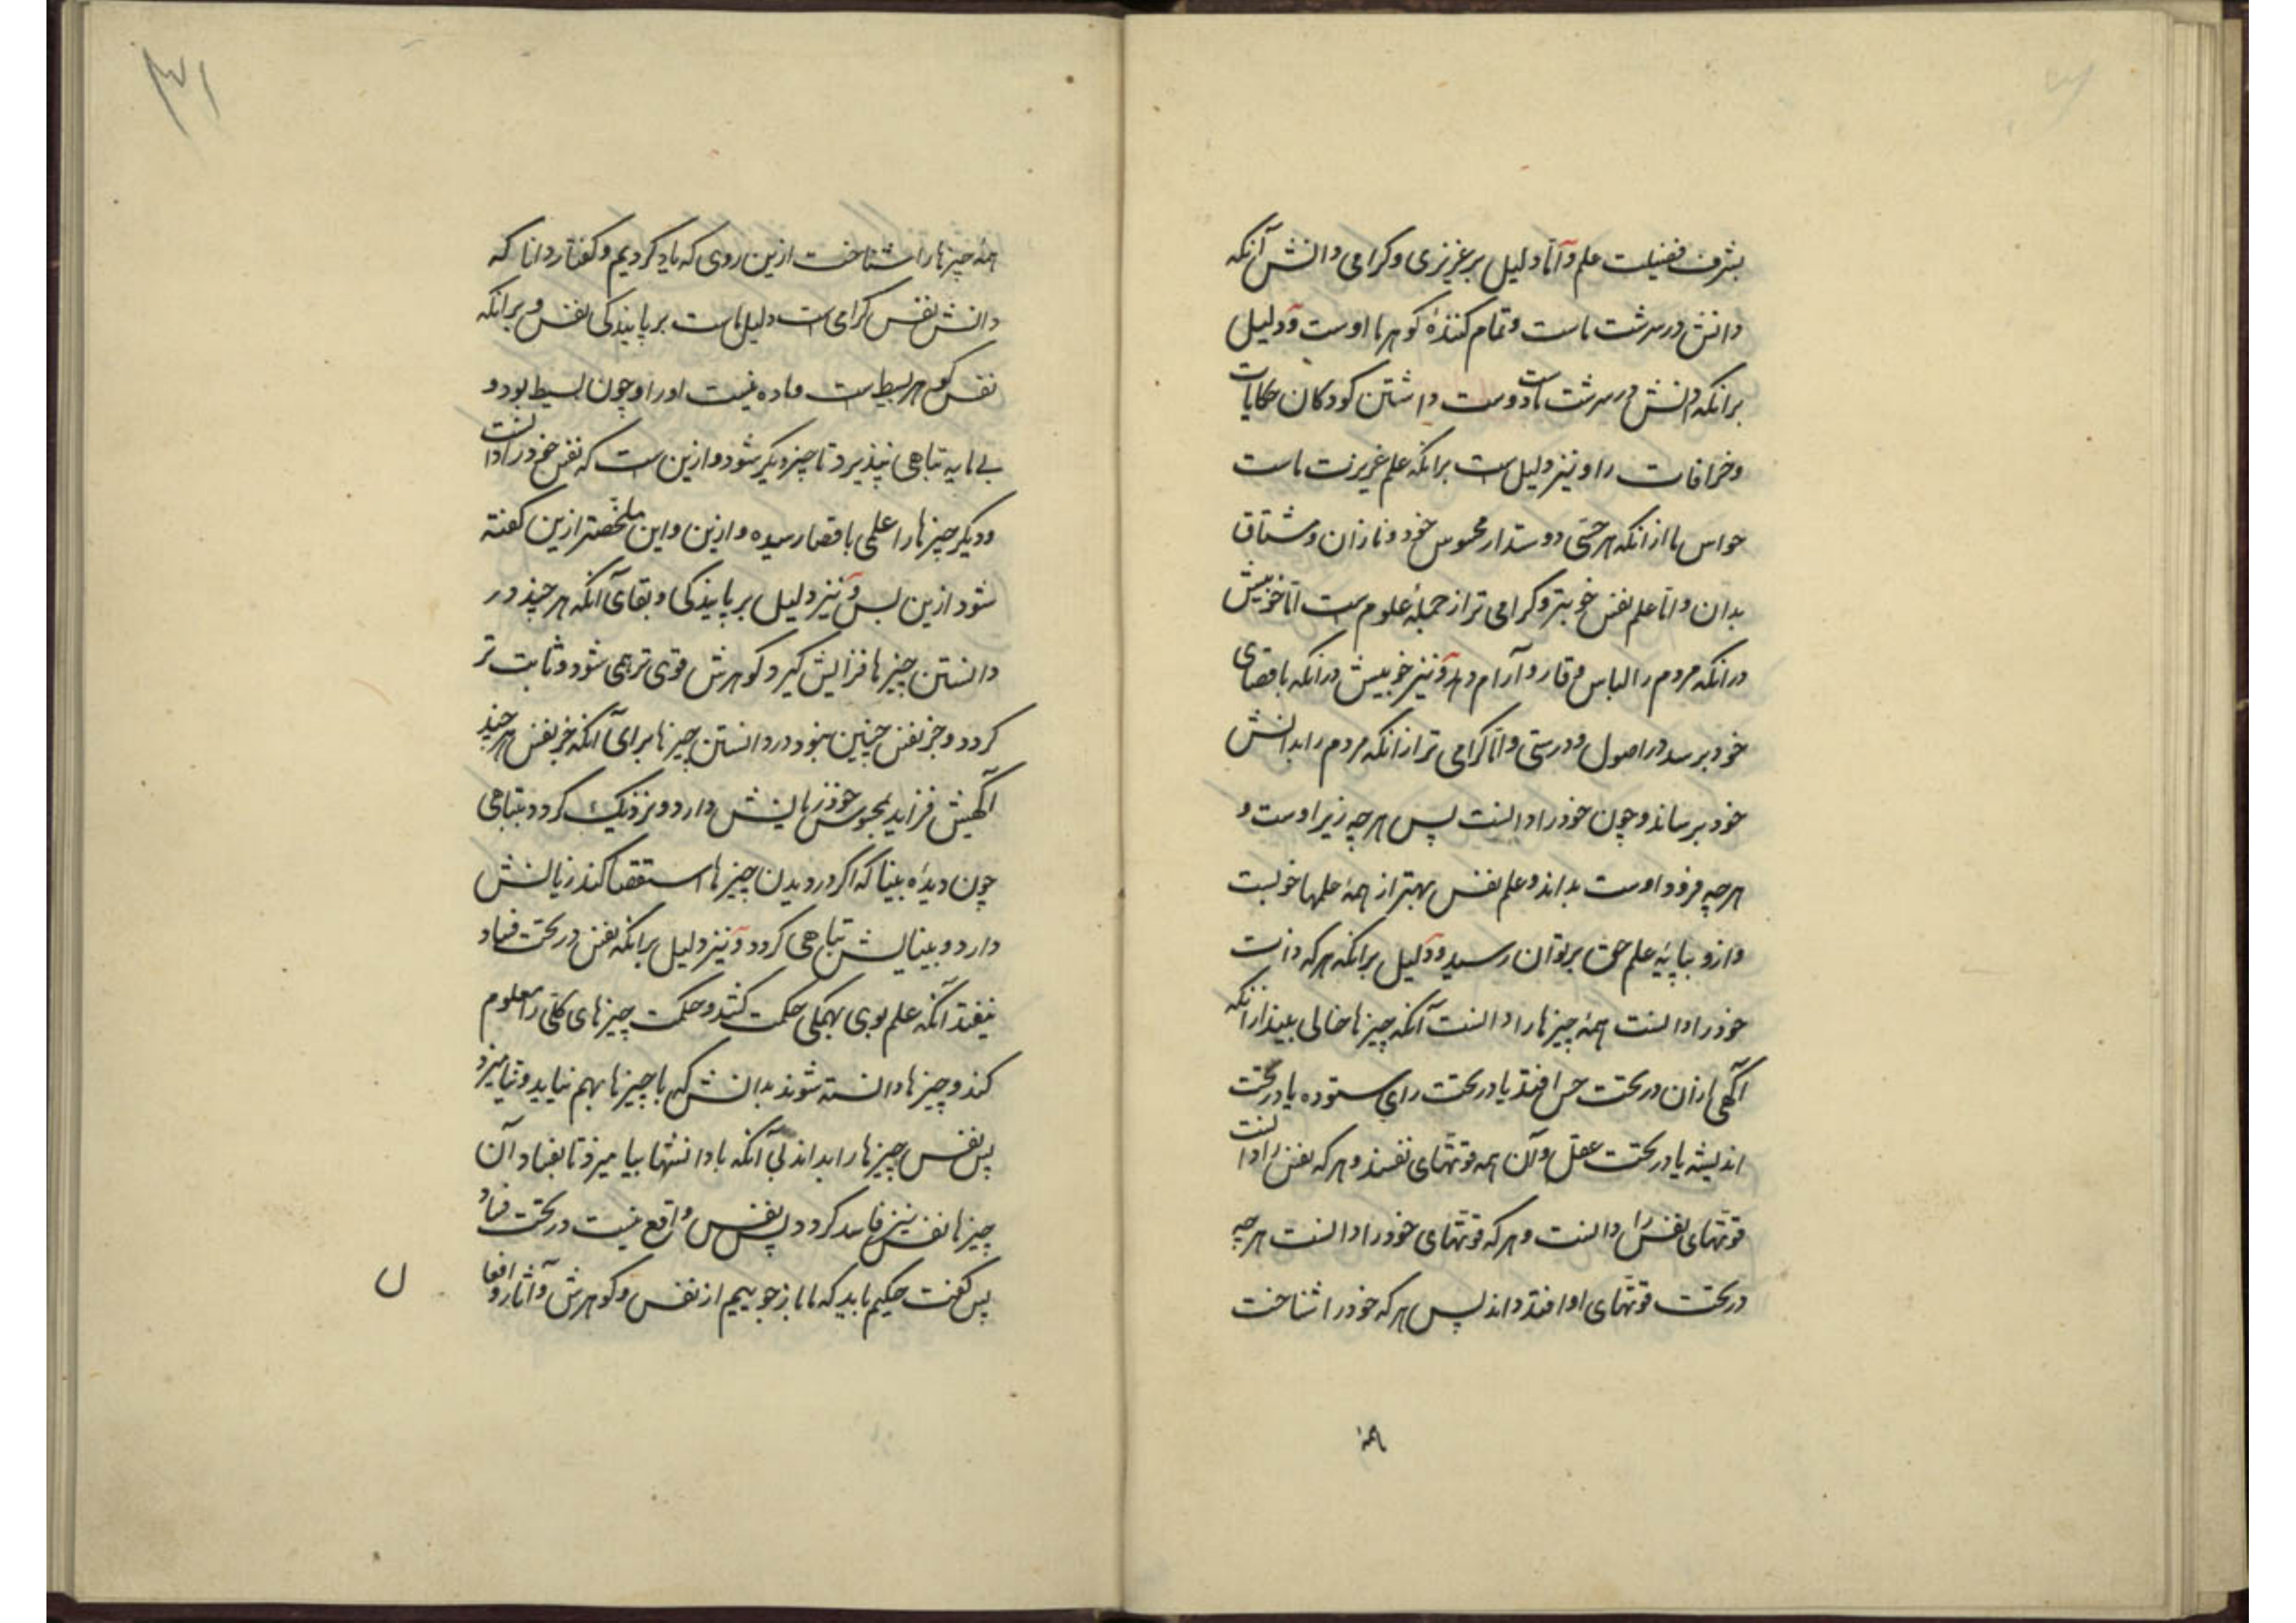 بشرف فضیلت علم و اما دلیل بر عزیزی و کرامی دانش آنکه
دانش در سرشت ماست و تمام کنندهٔ کوهر ما اوست و دلیل
برانکه دانش در سرشت ماست دوست داشتن کودکان حکایات
و خرافات را و نیز دلیل ست برانکه علم غریزت ماست
حواس ما از انکه هر حسّی دوستدار محسوس خود و نازان و مشتاق
بدان و اما علم نفس خوبتر و کرامی تر از جملهٔ علوم ست اما خوبیش
در انکه مردم را لباس وقار و آرام دهد و نیز خوبیش در انکه باقصای
خود برسد در اصول و درستی و اما کرامی تر از انکه مردم را بدانش
خود برساند و چون خود را دانست پس هر چه زیر اوست و
هر چه فرود اوست بداند و علم نفس بهتر از همهٔ علمها خوبست
و ازو بپایهٔ علم حق بر توان رسید و دلیل برانکه هر که دانست
خود را دانست همهٔ چیزها را دانست آنکه چیزها خالی نیند از انکه
آکهی ازان در تحت حس افتد یا در تحت رای ستوده یا در تحت
اندیشه یا در تحت عقل و آن همه قوتهای نفسند و هر که نفس را دانست
قوتهای نفس را دانست و هر که قوتهای خود را دانست هر چه
در تحت قوتهای او افتد داند پس هر که خود را شناخت
همهٔ
همهٔ چیزها را شناخت ازین روی که یاد کردیم و کفتار دانا که
دانش نفس کرامی ست دلیل ماست بر پایندکی نفس و برانکه
نفس کوهر بسیط ست و ماده نیست او را و چون بسیط بود و
بی مایه تباهی نپذیرد تا چیز دیکر شود و ازین ست که نفس خود را دانست
و دیکر چیزها را علمی باقصا رسیده و ازین و این ملخّصتر ازین کفته
شود ازین پس و نیز دلیل بر پایندکی و بقای آنکه هر چند در
دانستن چیزها فزایش کیرد کوهرش قوی تر همی شود و ثابت تر
کردد و جز نفس چنین نبود در دانستن چیزها برای آنکه جز نفس هر چند
آکهیش فزاید بمحسوس خود زیانش دارد و نزدیک کردد بتباهی
چون دیدهٔ بینا که اکر در دیدن چیزها استقصا کند زیانش
دارد و بیناییش تباهی کردد و نیز دلیل برانکه نفس در تحت فساد
نیفتد آنکه علم بوی بهمکی حکمت کشد و حکمت چیزهای کلّی را معلوم
کند و چیزها دانسته شوند بدانش که با چیزها بهم نیاید و نیامیزد
پس نفس چیزها را بداند بی آنکه با دانستها بیامیزد تا بفساد آن
چیزها نفس نیز فاسد کردد پس نفس واقع نیست در تحت فساد
پس کفت حکیم باید که ما باز جوییم از نفس و کوهرش و آثار و افعا
ل
۳۱